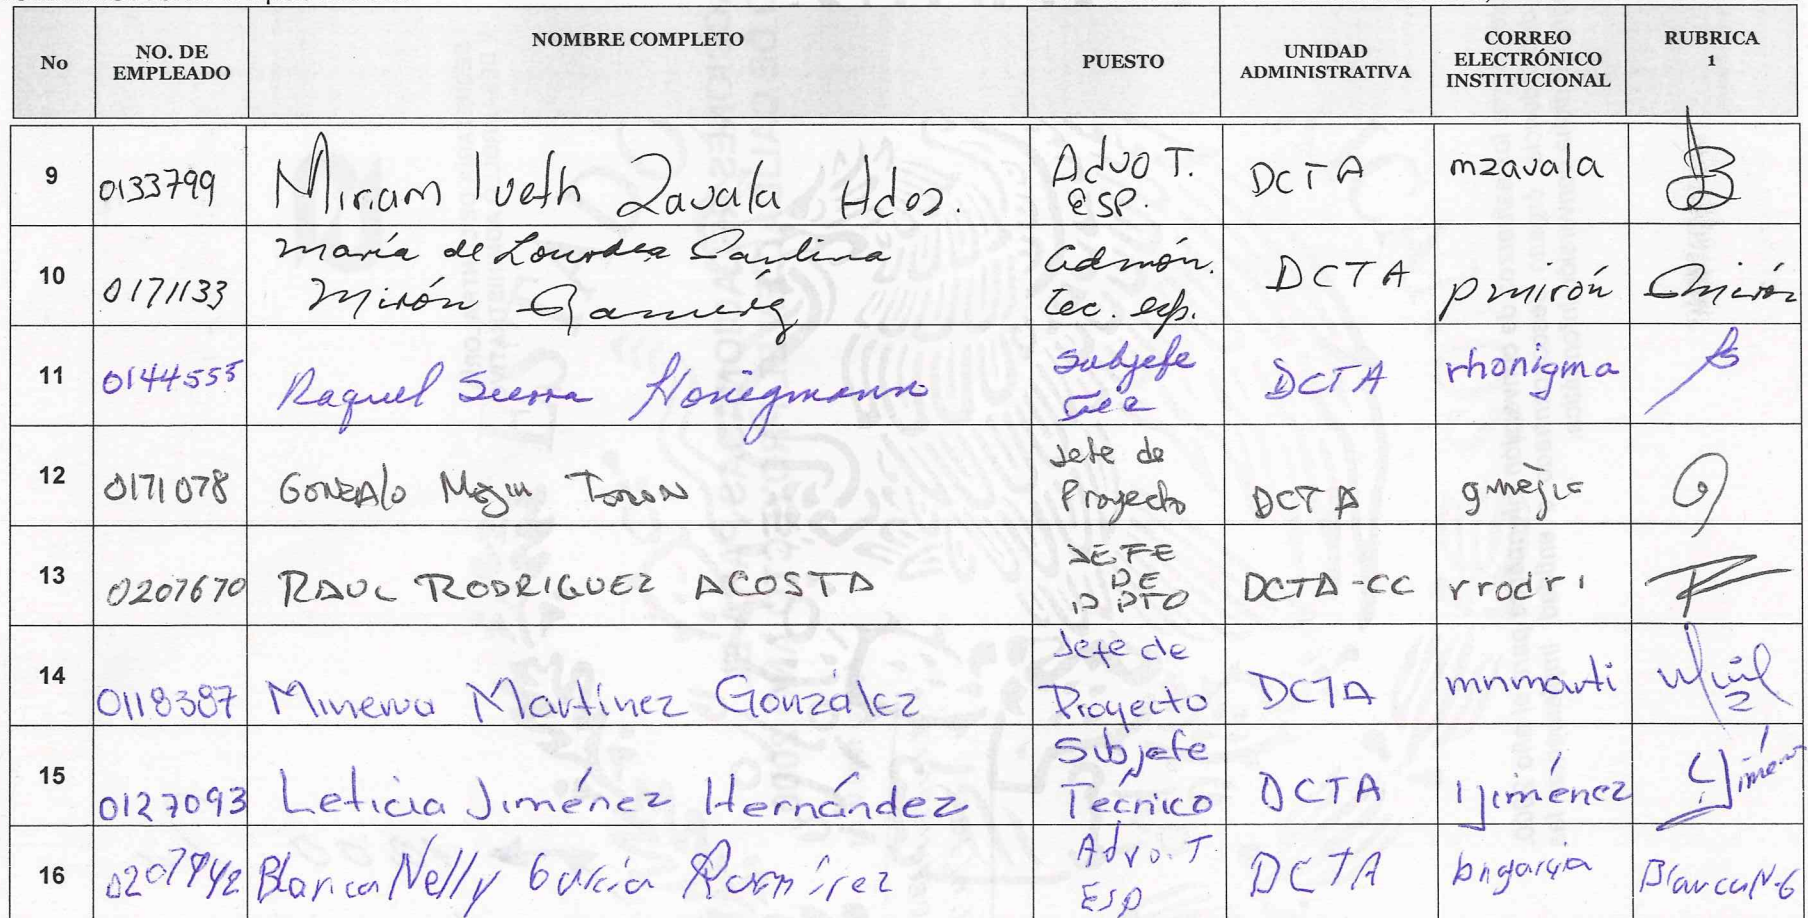 No NO. DE EMPLEADO NOMBRE COMPLETO PUESTO UNIDAD ADMINISTRATIVA CORREO ELECTRÓNICO INSTITUCIONAL RUBRICA 1
9 0133799 Miriam Iveth Zavala Hdez. Advo T. esp. DCTA mzavala
10 0171133 María de Lourdes Paulina Mirón Ramírez Admón. tec. esp. DCTA pmirón Pmirón
11 0144555 Raquel Sierra Honigmann Subjefe Tec DCTA rhonigma
12 0171078 Gonzalo Jefe de Proyecto DCTA
13 0207670 RAUL RODRIGUEZ ACOSTA JEFE DE DPTO DCTA-CC rrodri
14 0118387 Minerva Martínez González Jefe de Proyecto DCTA mnmarti
15 0127093 Leticia Jiménez Hernández Subjefe Técnico DCTA ljiménez
16 Blanca Nelly García Ramírez Advo. T. Esp DCTA bngarcia Blanca N.G